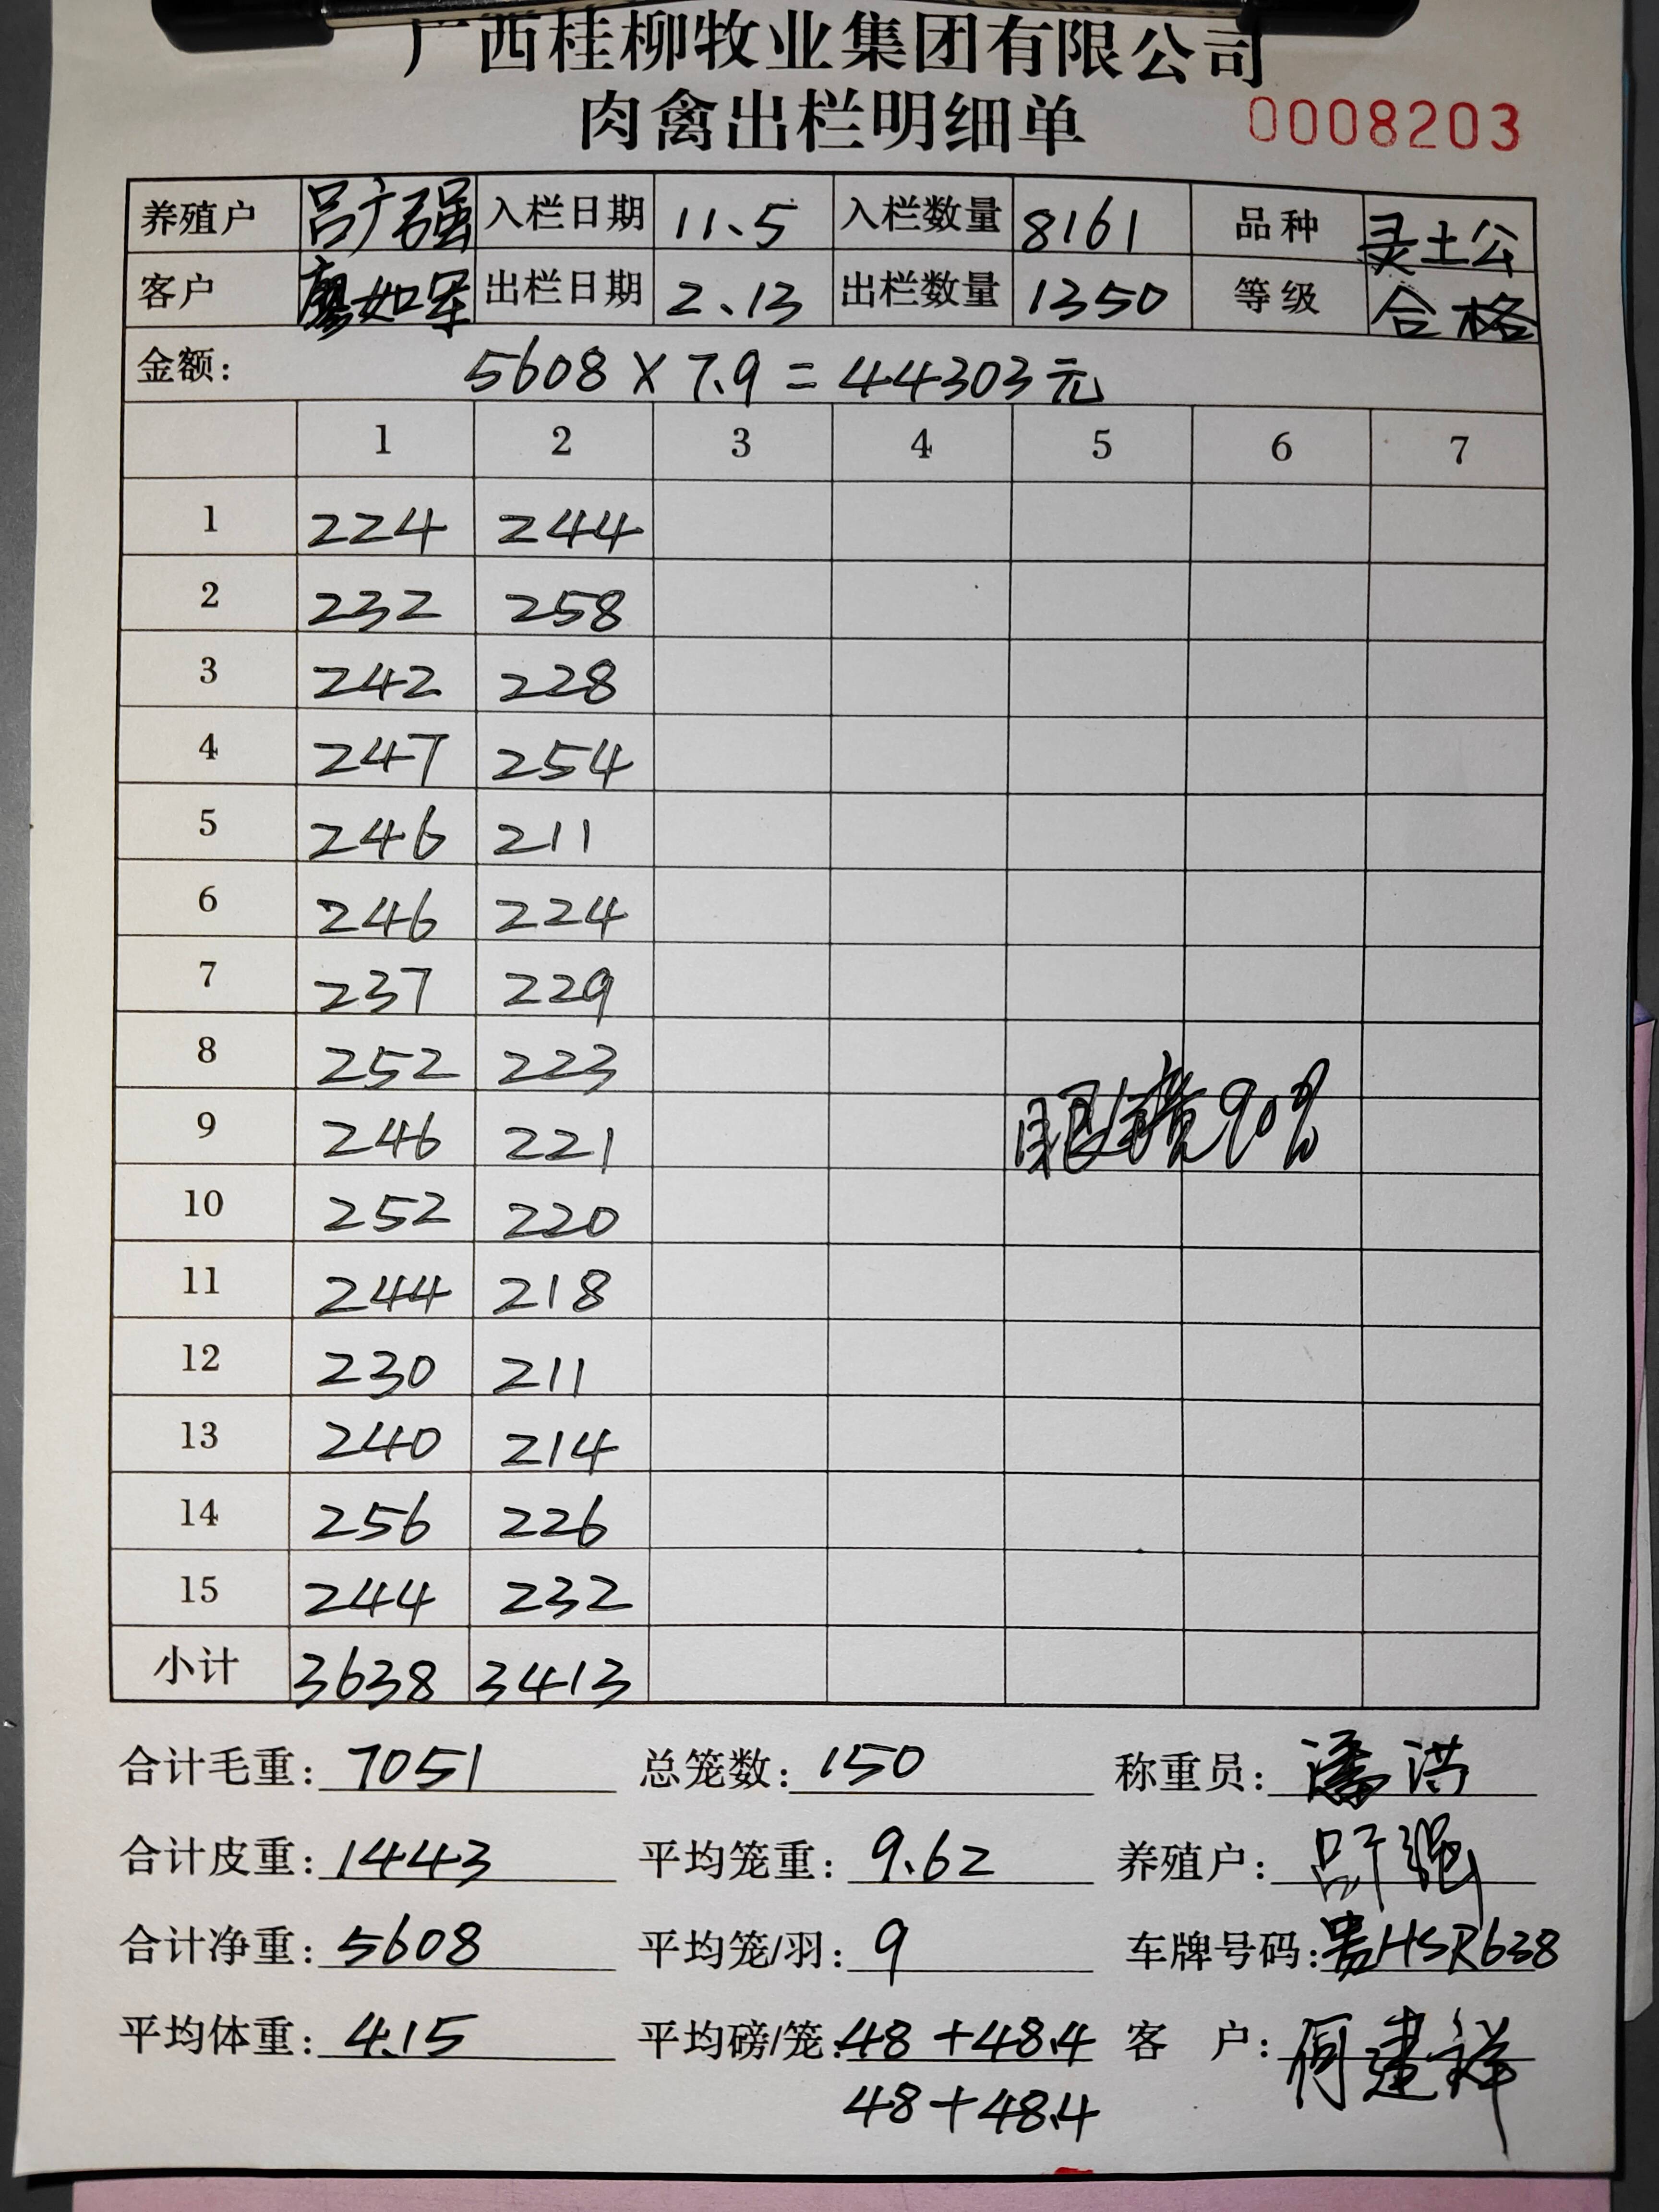 广西桂柳牧业集团有限公司
肉禽出栏明细单 0008203
养殖户 吕广强 入栏日期 11.5 入栏数量 8161 品种 灵土公
客户 廖如军 出栏日期 2.13 出栏数量 1350 等级 合格
金额: 5608×7.9=44303元
1 2 3 4 5 6 7
1 224 244
2 232 258
3 242 228
4 247 254
5 246 211
6 246 224
7 237 229
8 252 223
9 246 221 90%
10 252 220
11 244 218
12 230 211
13 240 214
14 256 226
15 244 232
小计 3638 3413
合计毛重: 7051 总笼数: 150 称重员: 潘洪
合计皮重: 1443 平均笼重: 9.62 养殖户: 吕广强
合计净重: 5608 平均笼/羽: 9 车牌号码: 贵HSR638
平均体重: 4.15 平均磅/笼: 48+48.4 客 户: 何建祥
48+48.4